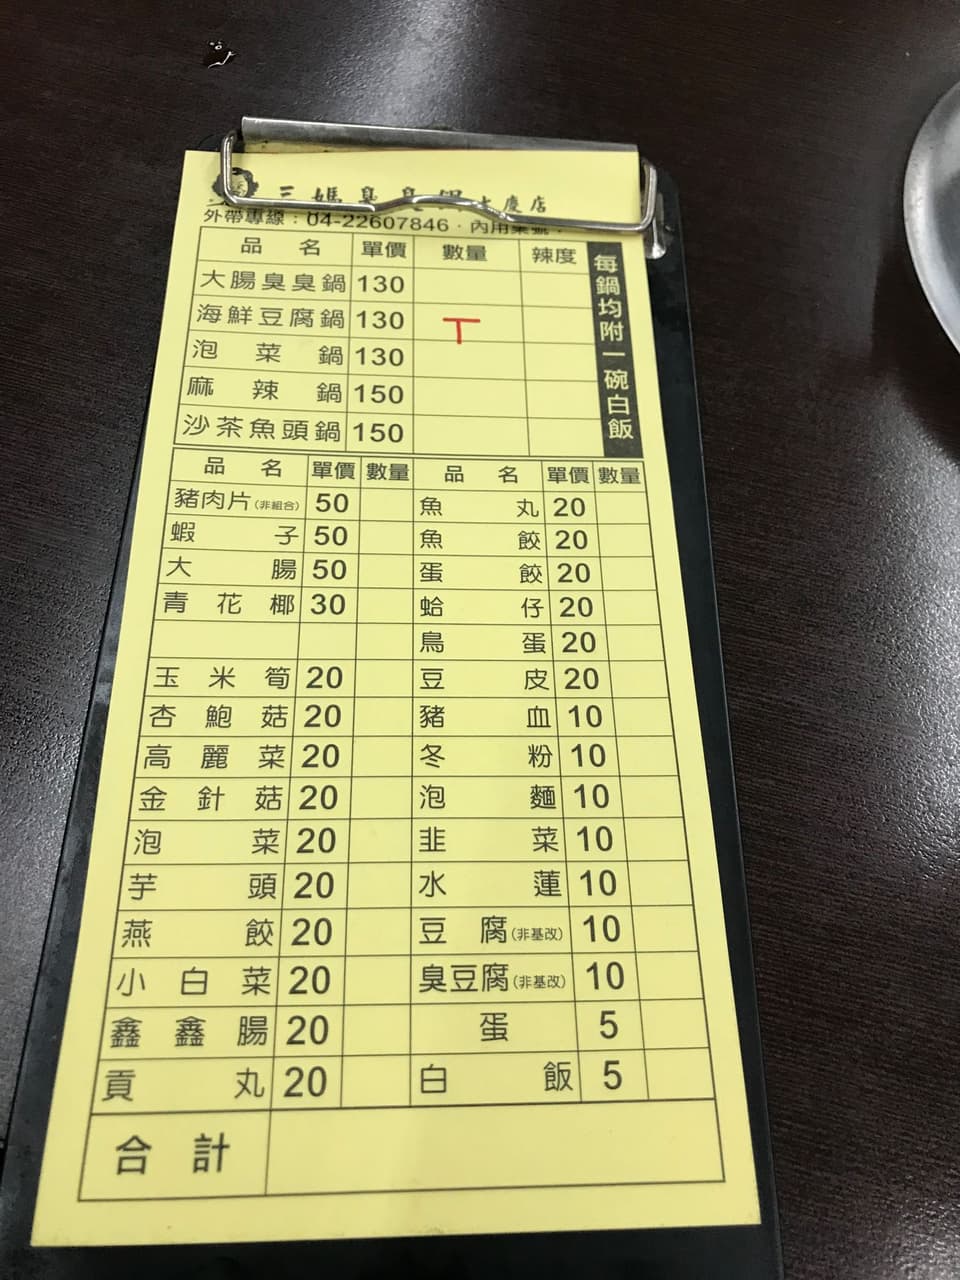 三媽臭臭鍋 大慶店
外帶專線：04-22607846．內用桌號：
品名 單價 數量 辣度
大腸臭臭鍋 130
海鮮豆腐鍋 130 T
泡菜鍋 130
麻辣鍋 150
沙茶魚頭鍋 150
每鍋均附一碗白飯
品名 單價 數量 品名 單價 數量
豬肉片(非組合) 50 魚丸 20
蝦子 50 魚餃 20
大腸 50 蛋餃 20
青花椰 30 蛤仔 20
鳥蛋 20
玉米筍 20 豆皮 20
杏鮑菇 20 豬血 10
高麗菜 20 冬粉 10
金針菇 20 泡麵 10
泡菜 20 韭菜 10
芋頭 20 水蓮 10
燕餃 20 豆腐(非基改) 10
小白菜 20 臭豆腐(非基改) 10
鑫鑫腸 20 蛋 5
貢丸 20 白飯 5
合計